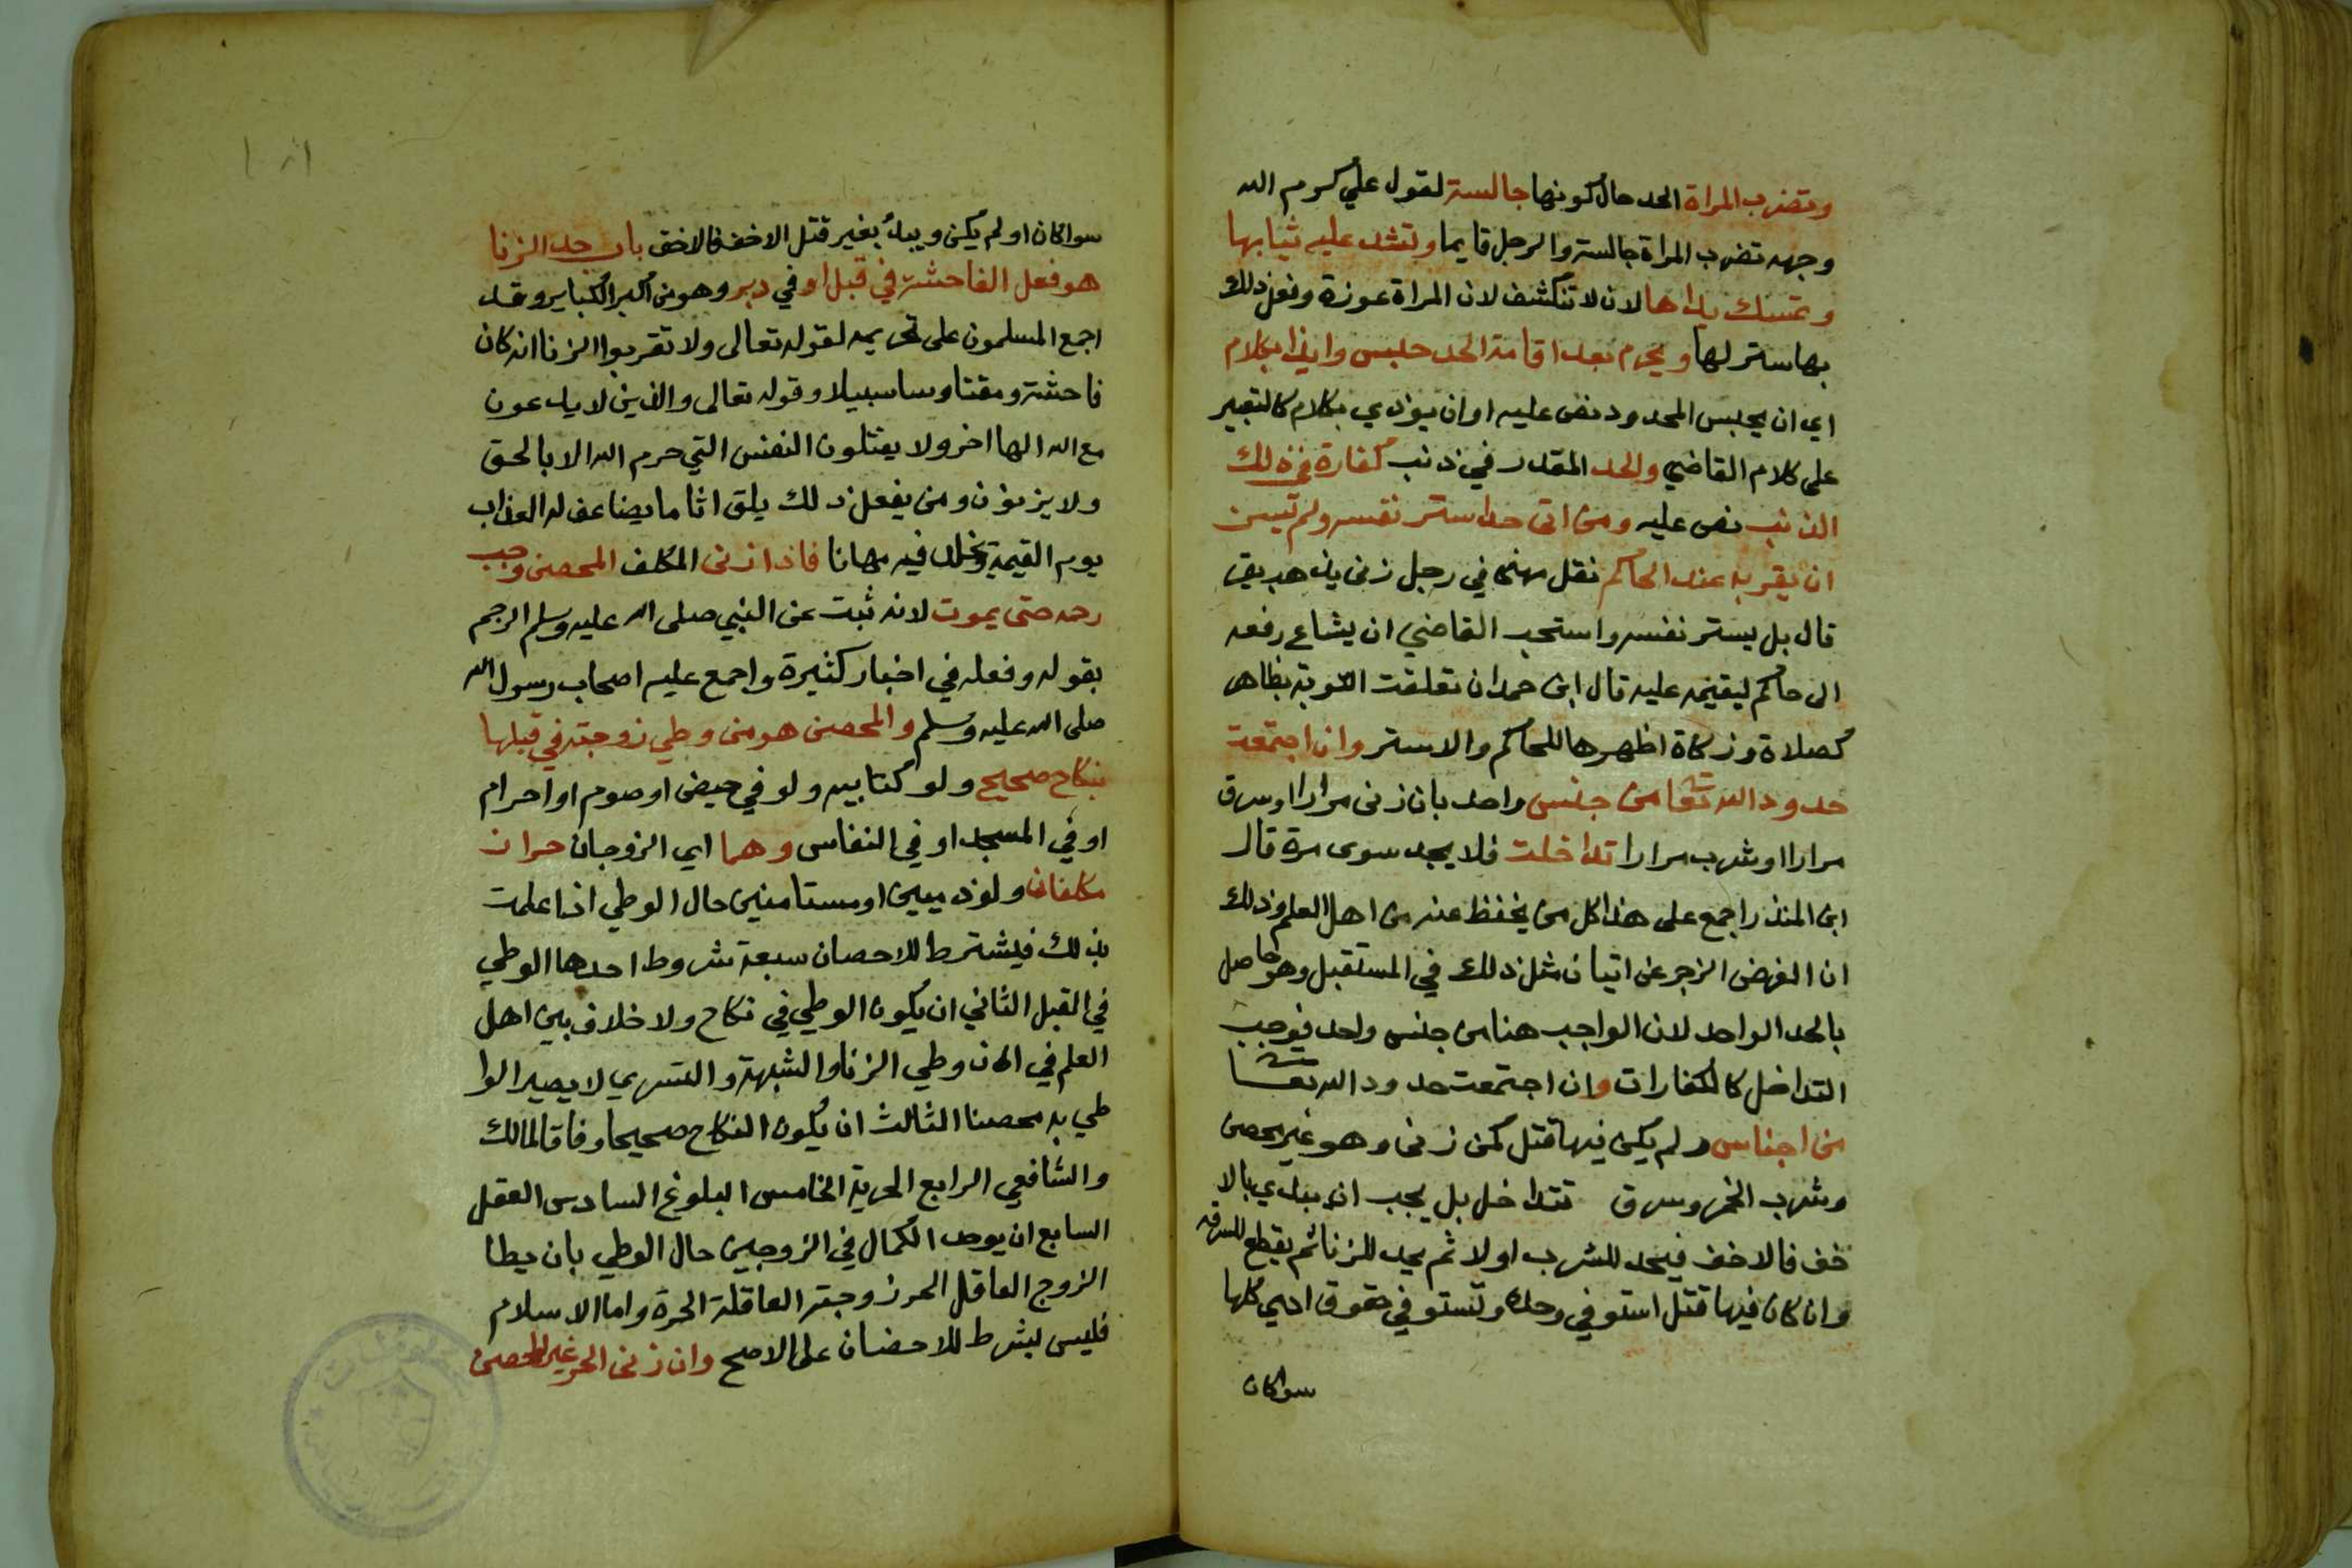 وتضرب المراة الحد حال كونها جالسة لقول علي كرم الله
وجهه تضرب المراة جالسة والرجل قايما وتشد عليه ثيابها
وتمسك يداها لان لا تنكشف لان المراة عورة وفعل ذلك
بها ستر لها ويحرم بعد اقامة الحد حبس وايذا بكلام
اي ان يحبس المحدود نص عليه او ان يوذي بكلام كالتعير
على كلام القاضي والحد المقدر في ذنب كفارة في ذلك
الذنب نص عليه ومن اتى حدا ستر نفسه ولم يسن
ان يقر به عند الحاكم نقل مهنا في رجل زنى يذهب يقر
قال بل يستر نفسه واستحب القاضي ان يشاع رفعه
الى حاكم ليقيمه عليه قال ابن حمدان تعلقت التوبة بظاهر
كصلاة وزكاة اظهرها للحاكم والاستر وان اجتمعت
حدود الله تعا من جنس واحد بان زنى مرارا او سرق
مرارا او شرب مرارا تداخلت فلا يحد سوى مرة قال
ابن المنذر اجمع على هذا كل من يحفظ عنه من اهل العلم وذلك
ان الغرض الزجر عن اتيان مثل ذلك في المستقبل وهو حاصل
بالحد الواحد لان الواجب هنا من جنس واحد فوجب
التداخل كالكفارات وان اجتمعت حدود الله تعا
من اجناس ولم يكن فيها قتل كمن زنى وهو غير محصن
وشرب الخمر وسرق تتداخل بل يجب ان يبدي بالا
خف فالاخف فيحد للشرب اولا ثم يحد للزنا ثم يقطع للسرقه
وان كان فيها قتل استوفي وحده وتستوفي حقوق ادمي كلها
سواكان
سواكان او لم يكن ويبدأ بغير قتل الاخف فالاخف باب حد الزنا
هو فعل الفاحشة في قبل او في دبر وهو من اكبر الكباير وقد
اجمع المسلمون على تحريمه لقوله تعالى ولا تقربوا الزنا انه كان
فاحشة ومقتا وسا سبيلا وقوله تعالى والذين لا يدعون
مع الله الها اخر ولا يقتلون النفس التي حرم الله الا بالحق
ولا يزنون ومن يفعل ذلك يلق اثاما يضاعف له العذاب
يوم القيمة ويخلد فيه مهانا فاذا زنى المكلف المحصن وجب
رجمه حتى يموت لانه ثبت عن النبي صلى الله عليه وسلم الرجم
بقوله وفعله في اخبار كثيرة واجمع عليه اصحاب رسول الله
صلى الله عليه وسلم والمحصن هو من وطي زوجته في قبلها
بنكاح صحيح ولو كتابيه ولو في حيض او صوم او احرام
او في المسجد او في النفاس وهما اي الزوجان حران
مكلفان ولو ذميين او مستامنين حال الوطي اذا علمت
بذلك فيشترط للاحصان سبعة شروط احدها الوطي
في القبل الثاني ان يكون الوطي في نكاح ولا خلاف بين اهل
العلم في ان وطي الزنا والشبهة والتسري لا يصير الوا
طي به محصنا الثالث ان يكون النكاح صحيحا وفاقا لمالك
والشافعي الرابع الحرية الخامس البلوغ السادس العقل
السابع ان يوجد الكمال في الزوجين حال الوطي بان يطا
الزوج العاقل الحر زوجته العاقلة الحرة واما الاسلام
فليس بشرط للاحصان على الاصح وان زنى الحر غير المحصن